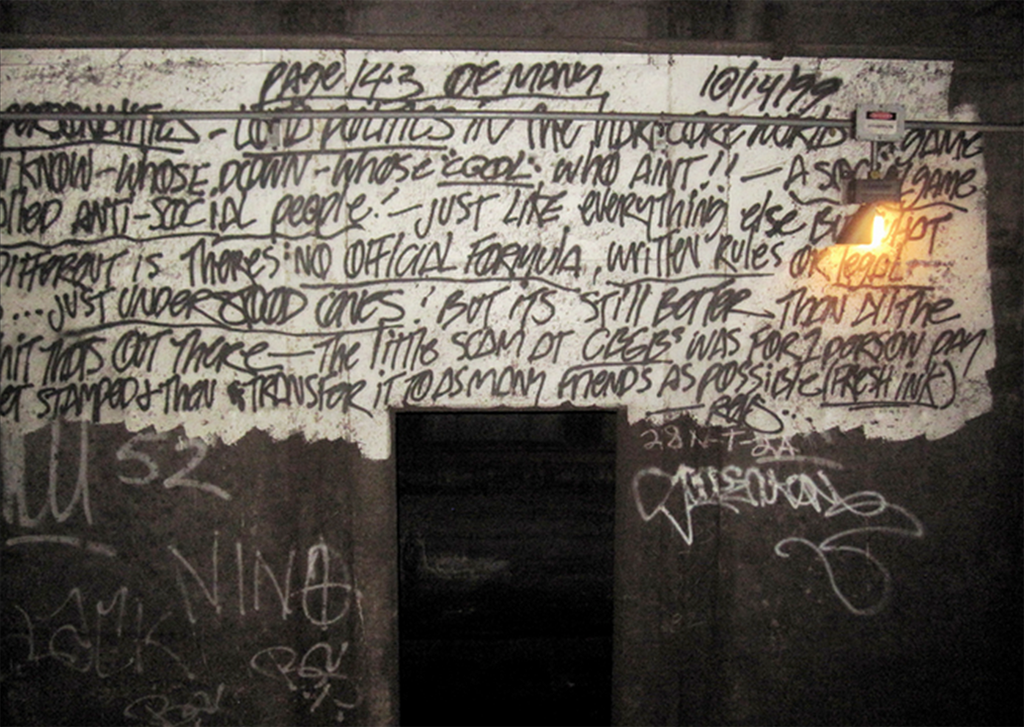 PAGE 143 OF MANY 10/14/99
PERSONALITIES - POLITICS IN THE HARDCORE WORLD GAME
KNOW - WHOSE DOWN - WHOSE "COOL" WHO AINT!! - A GAME
ANTI-SOCIAL people! - JUST LIKE everything else
DIFFERENT IS THERES NO OFFICIAL FORMULA, WRITTEN RULES OR legal
...JUST UNDERSTOOD ONES! BUT ITS STILL BETTER THAN All THE
THATS OUT THERE - THE little SCAM AT CBGBs WAS FOR 1 PERSON PAY
GET STAMPED & THEN TRANSFER IT TO AS MANY FRIENDS AS POSSIBLE (FRESH INK)
REVS
28 N-T-2A
52
NINA